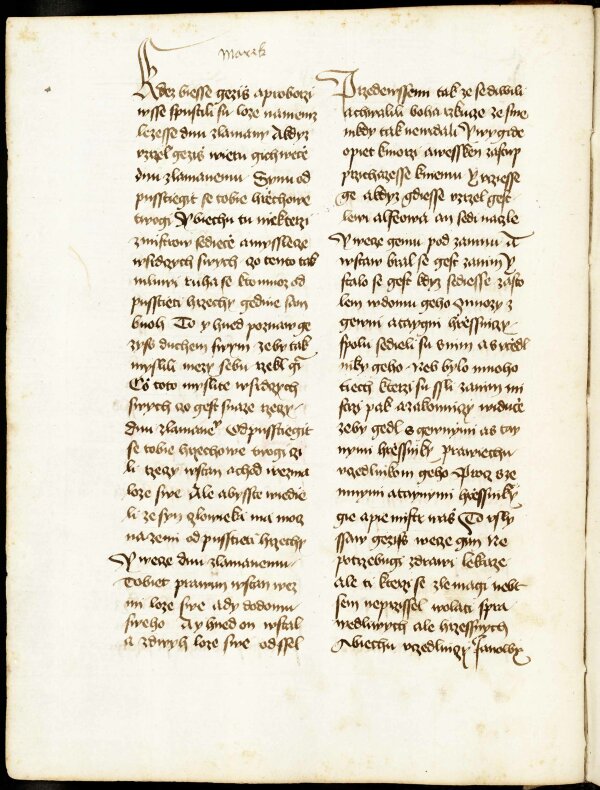 Marek
Kdez biesse gezis a proborzi
wsse spustili su loze nanemz
lezesse dnu zlamany A kdyz
vzrzel gezis wieru gich wece
dnu zlamanemu Synu od
pusstiegit se tobie hrziechowe
twogi Y biechu tu niekterzi
z mistrow sediece a myslece
w srdczych swych czo tento tak
mluwi ruha se kto muoz od
pusstieti hrzechy gedine sam
buoh To y hned poznaw ge
zyss duchem swym zeby tak
myslili mezy sebu rzekl gim
Czo toto myslite w srdczych
swych czo gest snaze rzeczy
dnu zlamanemu Odpusstiegit
se tobie hrzechowe twogi czi
li rzeczy wstan a chod wezma
loze swe Ale abysste wiedie
li ze syn czlowieka ma mocz
na zemi odpusstieti hrzechy
Y wece dnu zlamanemu
Tobiet prawim wstan wez
mi loze swe a dy do domu
sweho A y hned on wstal
a zdwih loze swe odssel
Przedewssemi tak ze se diwili
a chwalili boha rzkucze ze sme
nikdy tak newidali Y wygide
opiet k morzi a wessken zastup
przichazesse k niemu Y vcziesse
ge a kdyz gdiesse vzrzel gest
lewi alfeowa an sedi na cle
Y wece gemu pod za mnu A
wstaw bral se gest za nim Y
stalo se gest kdyz sediesse za sto
lem w domu geho Mnozy z
gewni a taygni hrziessniczy
spolu sedieli su s nim a s vczedl
niky geho neb bylo mnoho
tiech kterzi su ssli za nim mi
strzi pak a zakonniczy widuce
zeby gedl s gewnymi a s tay
nymi hrziessniky prawiechu
vczedlnikom geho Procz s ze
wnymi a taynymi hrziessniky
gie a pie mistr wass To vsly
ssaw geziss wece gim Ne
potrzebugi zdrawi lekarze
ale ti kterzi se zle magi nebt
sem neprzissel wolati spra
wedliwych ale hrziessnych
A biechu vczedlniczy Janowy